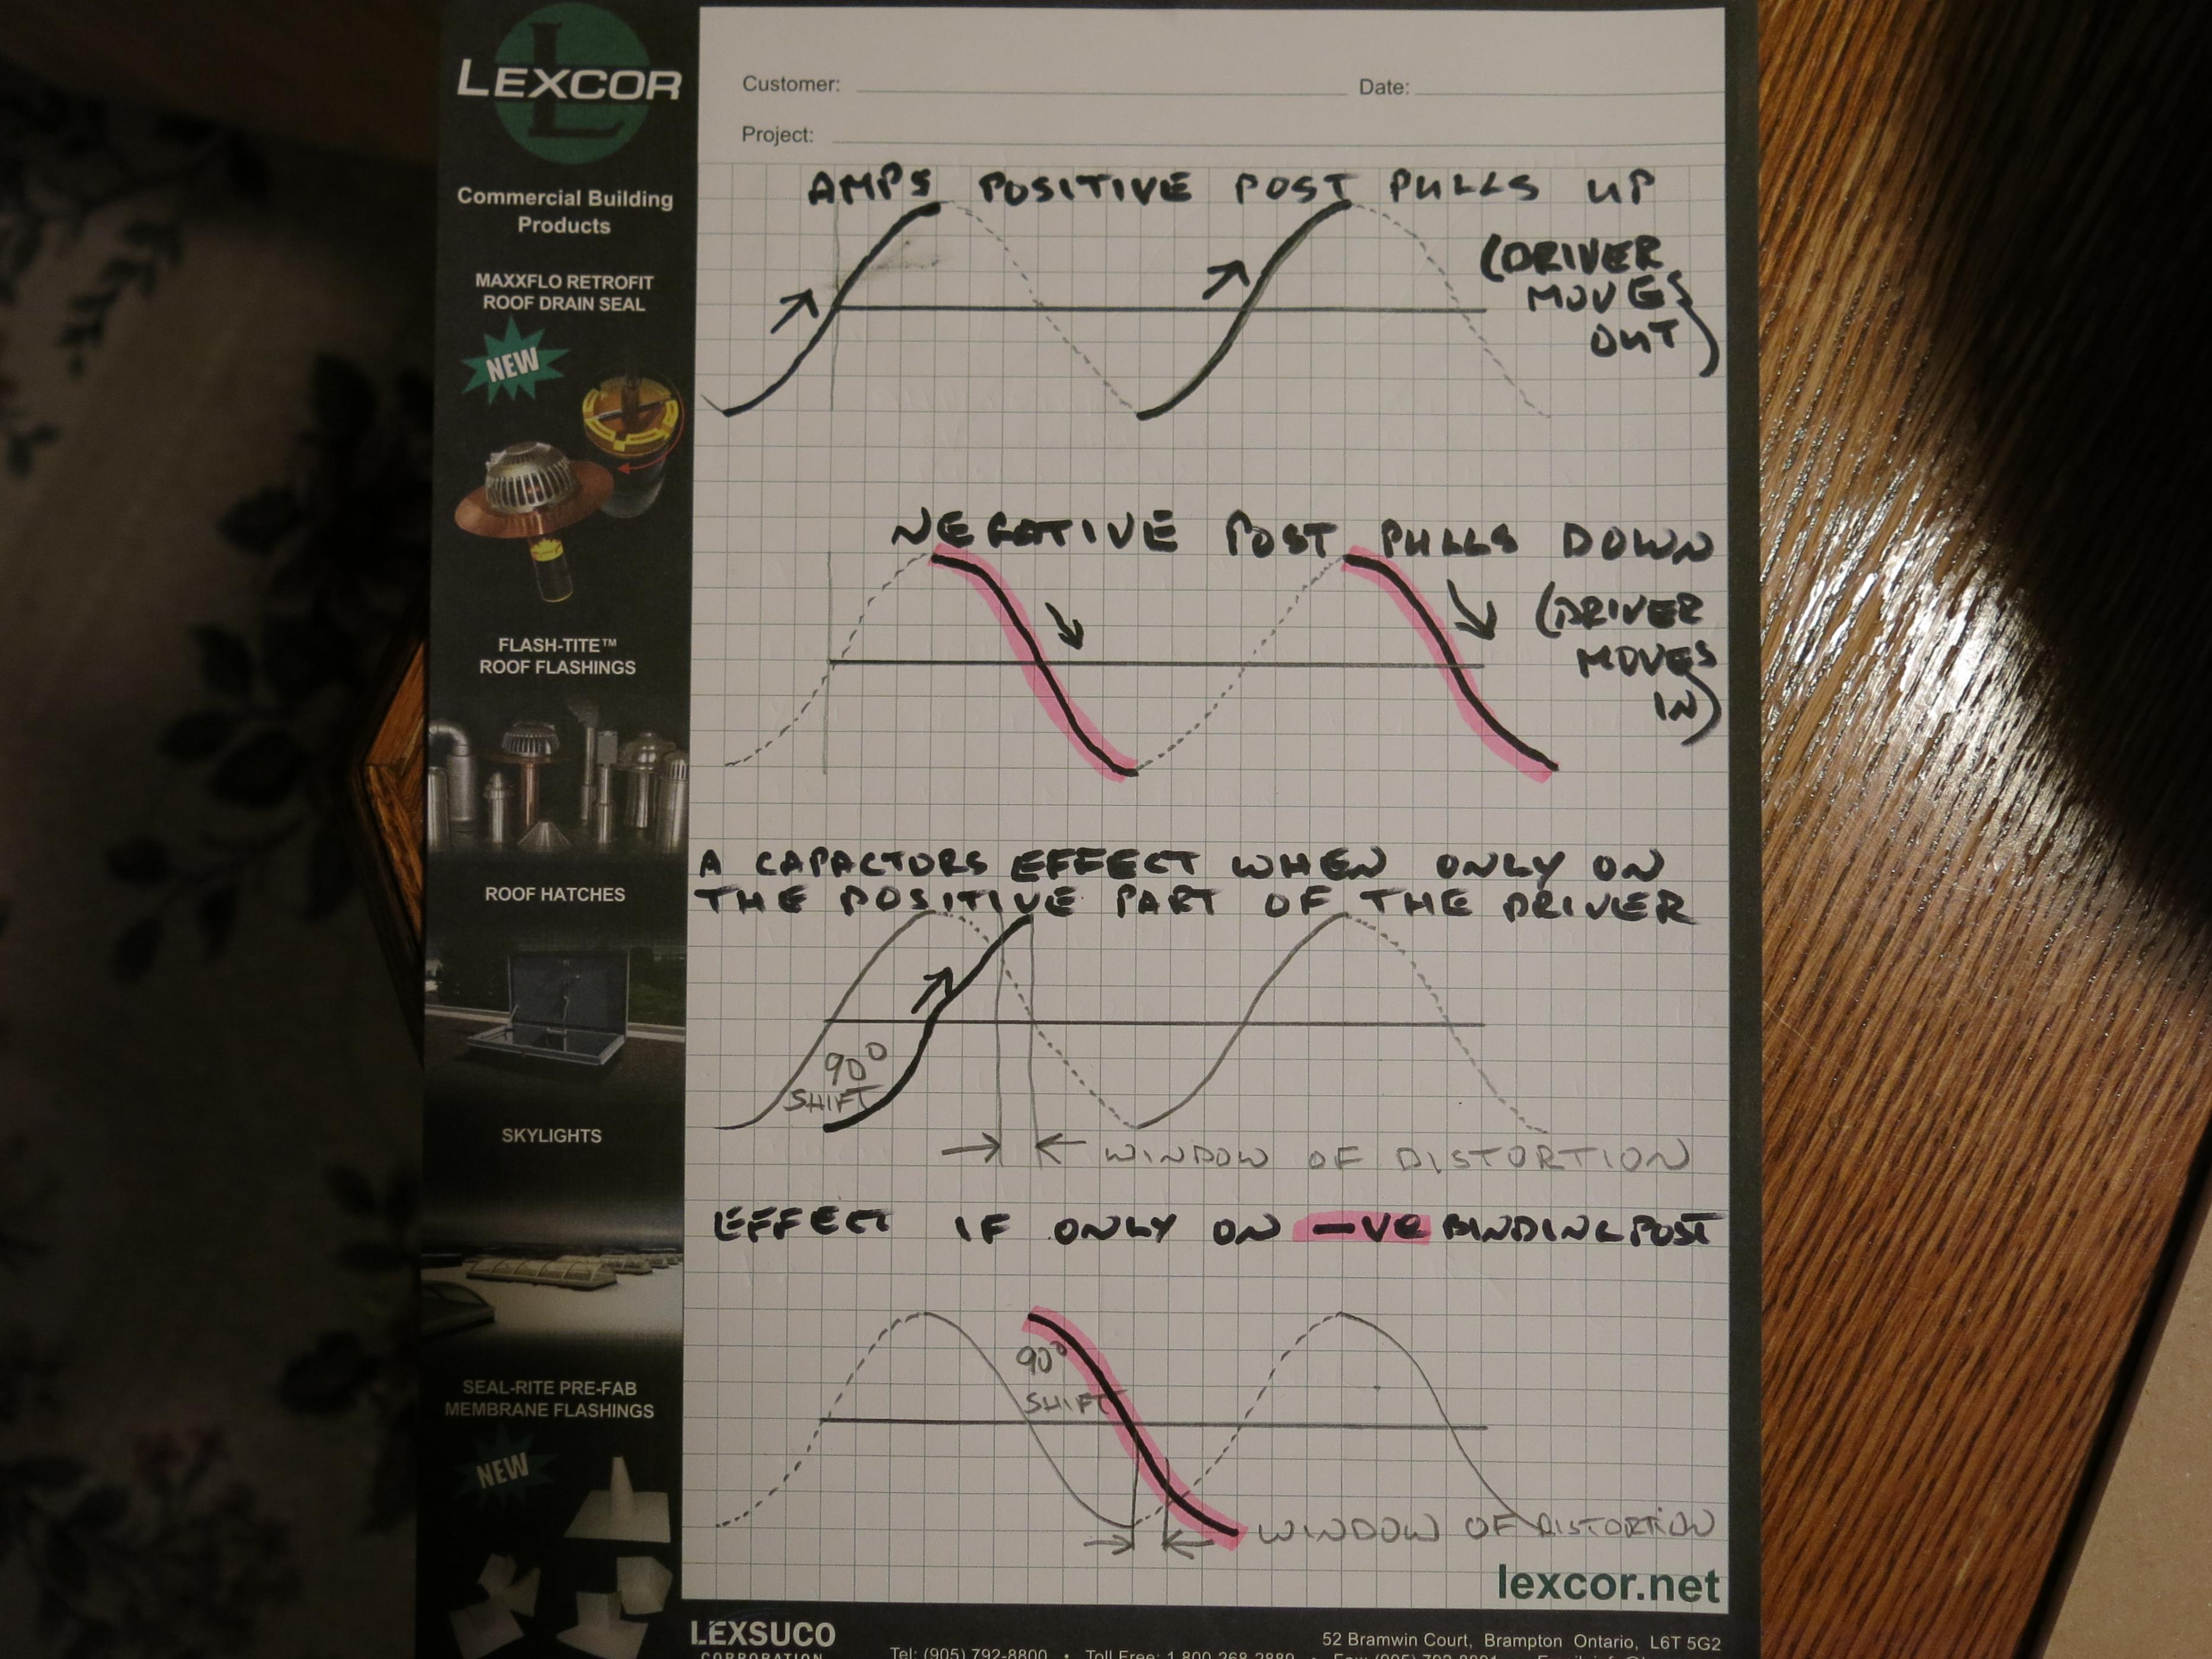 LEXCOR
Commercial Building
Products
MAXXFLO RETROFIT
ROOF DRAIN SEAL
NEW
FLASH-TITE™
ROOF FLASHINGS
ROOF HATCHES
SKYLIGHTS
SEAL-RITE PRE-FAB
MEMBRANE FLASHINGS
NEW
Customer: Date:
Project:
AMPS POSITIVE POST PULLS UP
(DRIVER
MOVES
OUT)
NEGATIVE POST PULLS DOWN
(DRIVER
MOVES
IN)
A CAPACTORS EFFECT WHEN ONLY ON
THE POSITIVE PART OF THE DRIVER
90°
SHIFT
WINDOW OF DISTORTION
EFFECT IF ONLY ON -VE BINDING POST
90°
SHIFT
WINDOW OF DISTORTION
lexcor.net
LEXSUCO
CORPORATION
52 Bramwin Court, Brampton Ontario, L6T 5G2
Tel: (905) 792-8800 • Toll Free: 1-800-268-2889 •